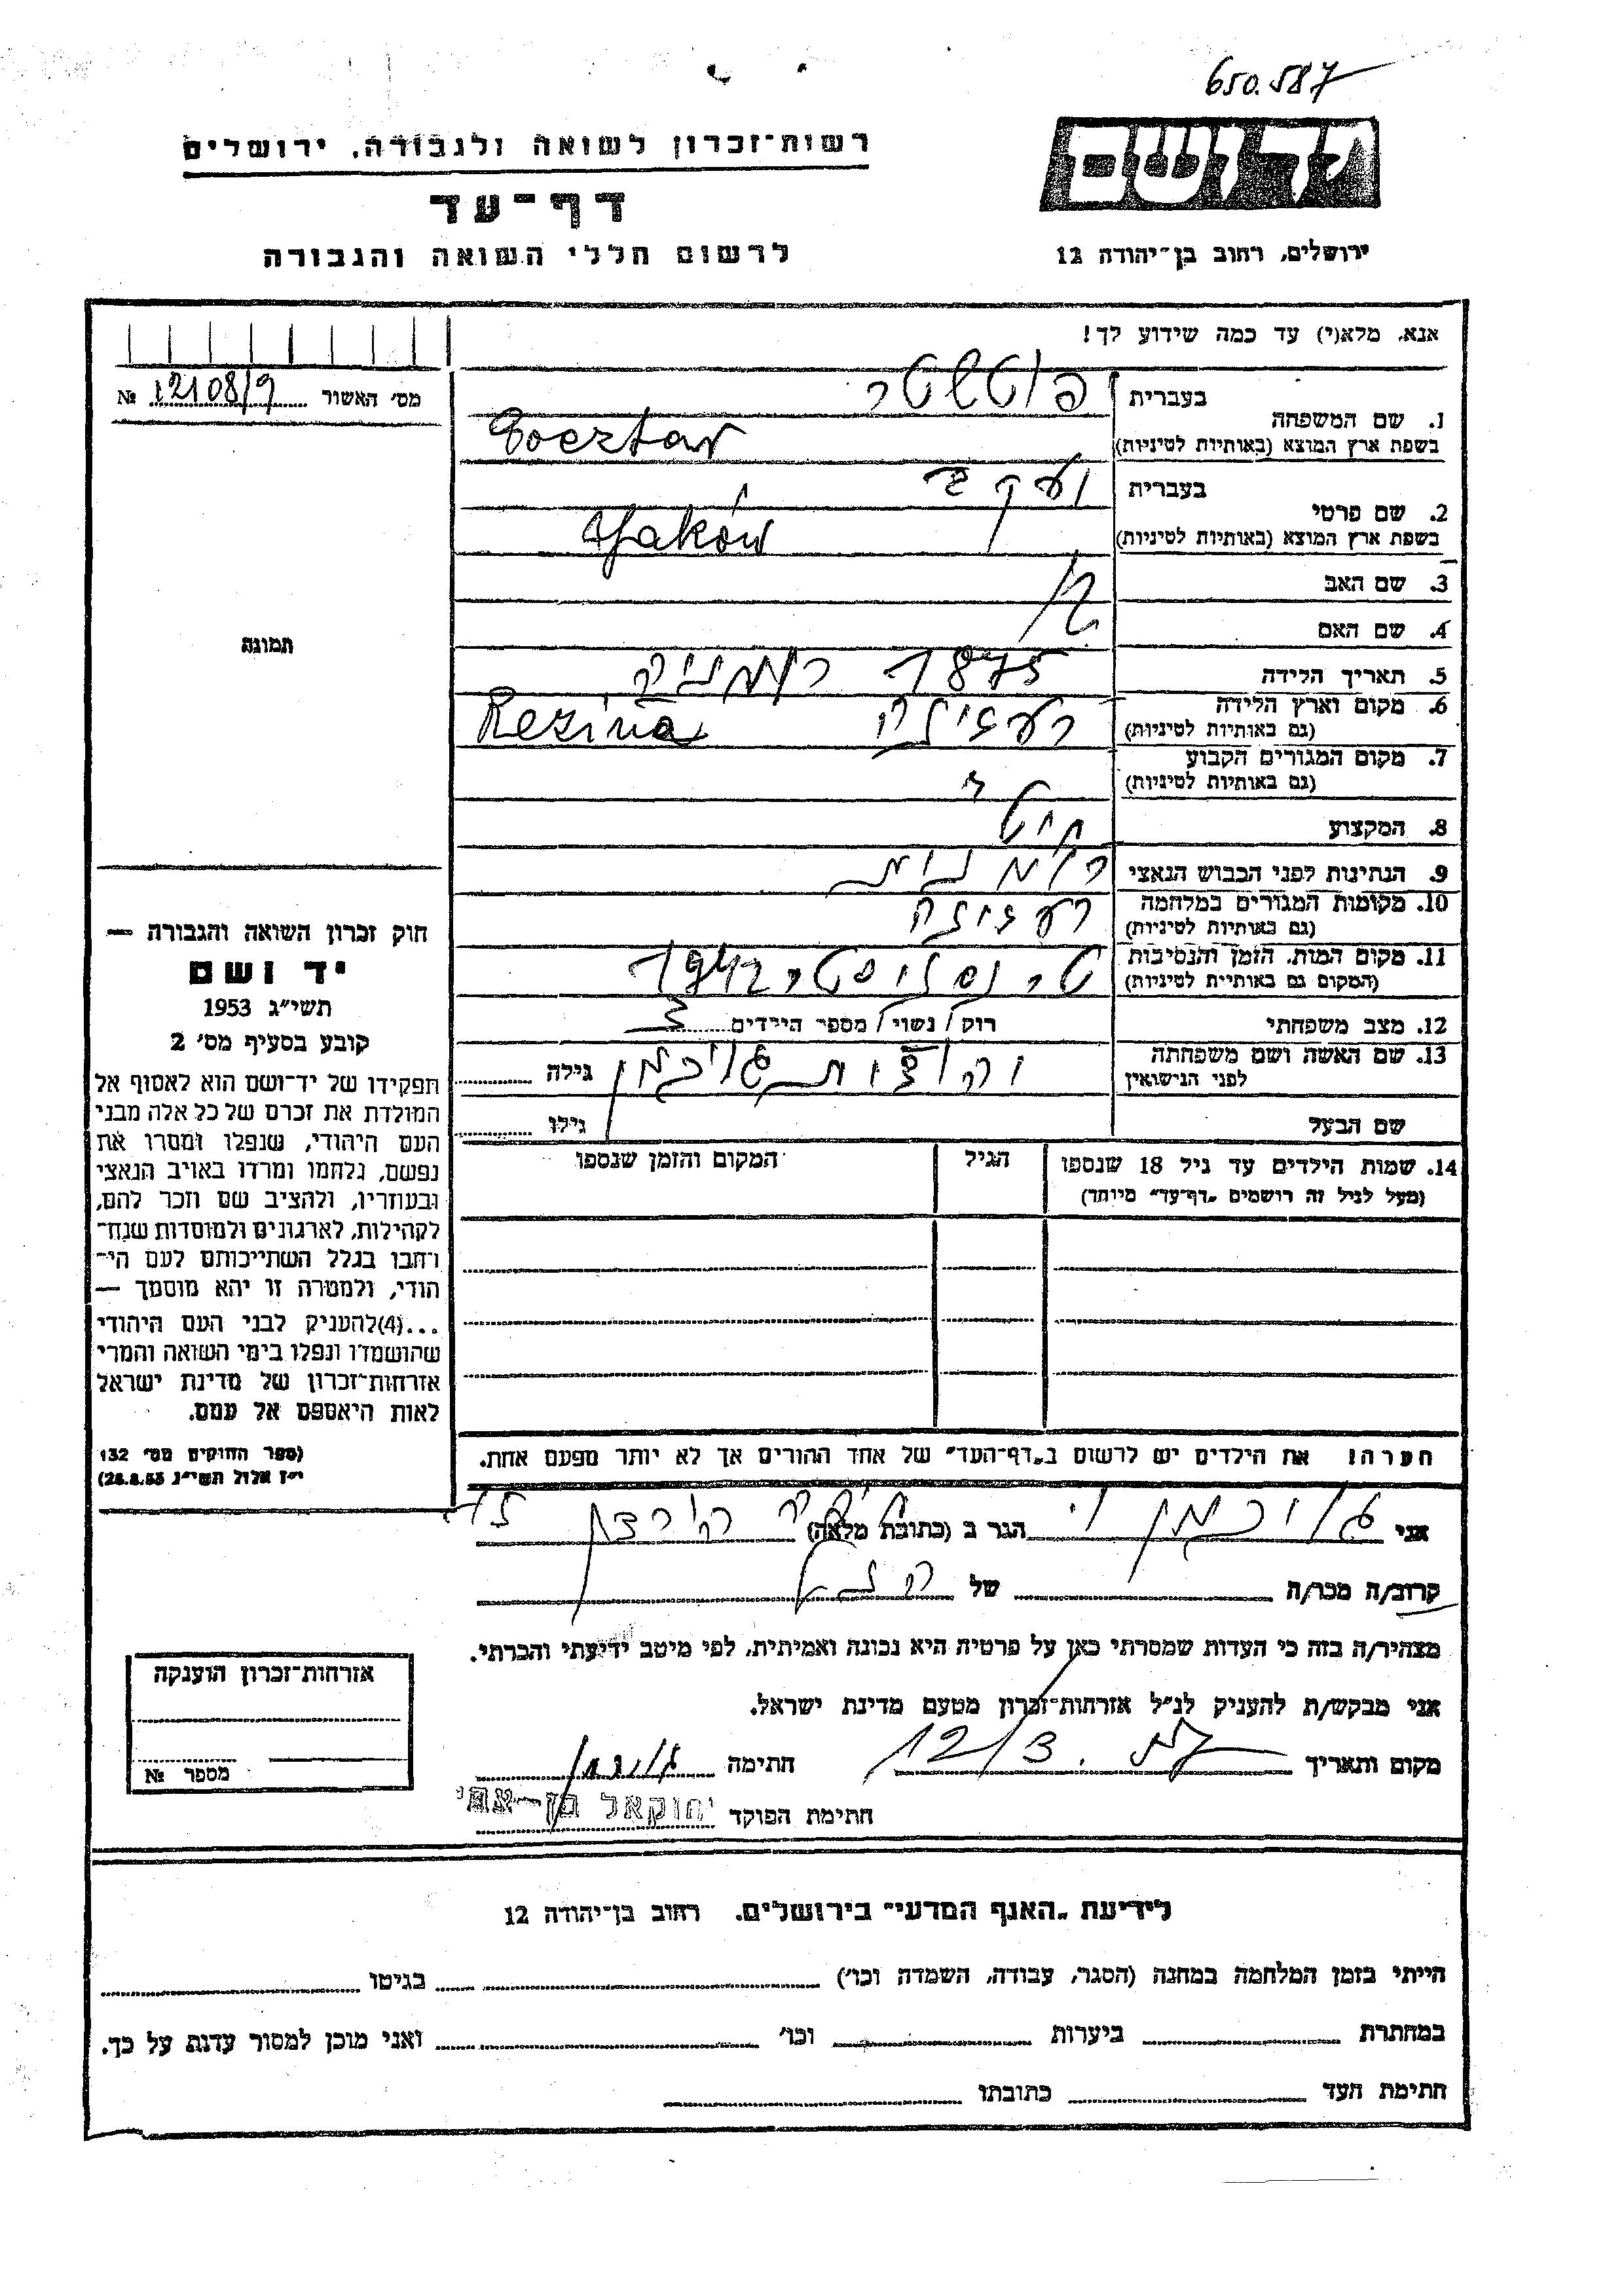 650.587
רשות־זכרון לשואה ולגבורה, ירושלים
יד ושם
דף־עד
לרשום חללי השואה והגבורה
ירושלים, רחוב בן־יהודה 12
אנא, מלא(י) עד כמה שידוע לך!
מס' האשור № 12108/9
1. שם המשפחה
בעברית
בשפת ארץ המוצא (באותיות לטיניות)
2. שם פרטי
בעברית יעקב
בשפת ארץ המוצא (באותיות לטיניות) Jaków
3. שם האב
4. שם האם
תמונה
5. תאריך הלידה 1875 רומניה
6. מקום וארץ הלידה Rezina
(גם באותיות לטיניות)
7. מקום המגורים הקבוע
(גם באותיות לטיניות)
8. המקצוע
9. הנתינות לפני הכבוש הנאצי רומנית
10. מקומות המגורים במלחמה
(גם באותיות לטיניות)
11. מקום המות, הזמן והנסיבות
(המקום גם באותיות לטיניות)
12. מצב משפחתי רוק/ נשוי/ מספר הילדים 3
13. שם האשה ושם משפחתה
לפני הנישואין
גילה
שם הבעל גילו
14. שמות הילדים עד גיל 18 שנספו
(מעל לגיל זה רושמים „דף־עד" מיוחד)
הגיל
המקום והזמן שנספו
חוק זכרון השואה והגבורה —
יד ושם
תשי"ג 1953
קובע בסעיף מס' 2
תפקידו של יד־ושם הוא לאסוף אל
המולדת את זכרם של כל אלה מבני
העם היהודי, שנפלו ומסרו את
נפשם, נלחמו ומרדו באויב הנאצי
ובעוזריו, ולהציב שם וזכר להם,
לקהילות, לארגונים ולמוסדות שנח־
רבו בגלל השתייכותם לעם הי־
הודי, ולמטרה זו יהא מוסמך —
...(4) להעניק לבני העם היהודי
שהושמדו ונפלו בימי השואה והמרי
אזרחות־זכרון של מדינת ישראל
לאות היאספם אל עמם.
(ספר החוקים מס' 132
י"ז אלול תשי"ג 28.8.53)
הערה! את הילדים יש לרשום ב„דף־העד" של אחד ההורים אך לא יותר מפעם אחת.
אני הגר ב (כתובת מלאה)
קרוב/ה מכר/ה של
מצהיר/ה בזה כי העדות שמסרתי כאן על פרטיה היא נכונה ואמיתית, לפי מיטב ידיעתי והכרתי.
אני מבקש/ת להעניק לנ"ל אזרחות־זכרון מטעם מדינת ישראל.
מקום ותאריך 12/3 חתימה
חתימת הפוקד יחזקאל בן־אמי
אזרחות־זכרון הוענקה
מספר №
לידיעת „האגף המדעי" בירושלים, רחוב בן־יהודה 12
הייתי בזמן המלחמה במחנה (הסגר, עבודה, השמדה וכו') בגיטו
במחתרת ביערות וכו' ואני מוכן למסור עדות על כך.
חתימת העד כתובתו